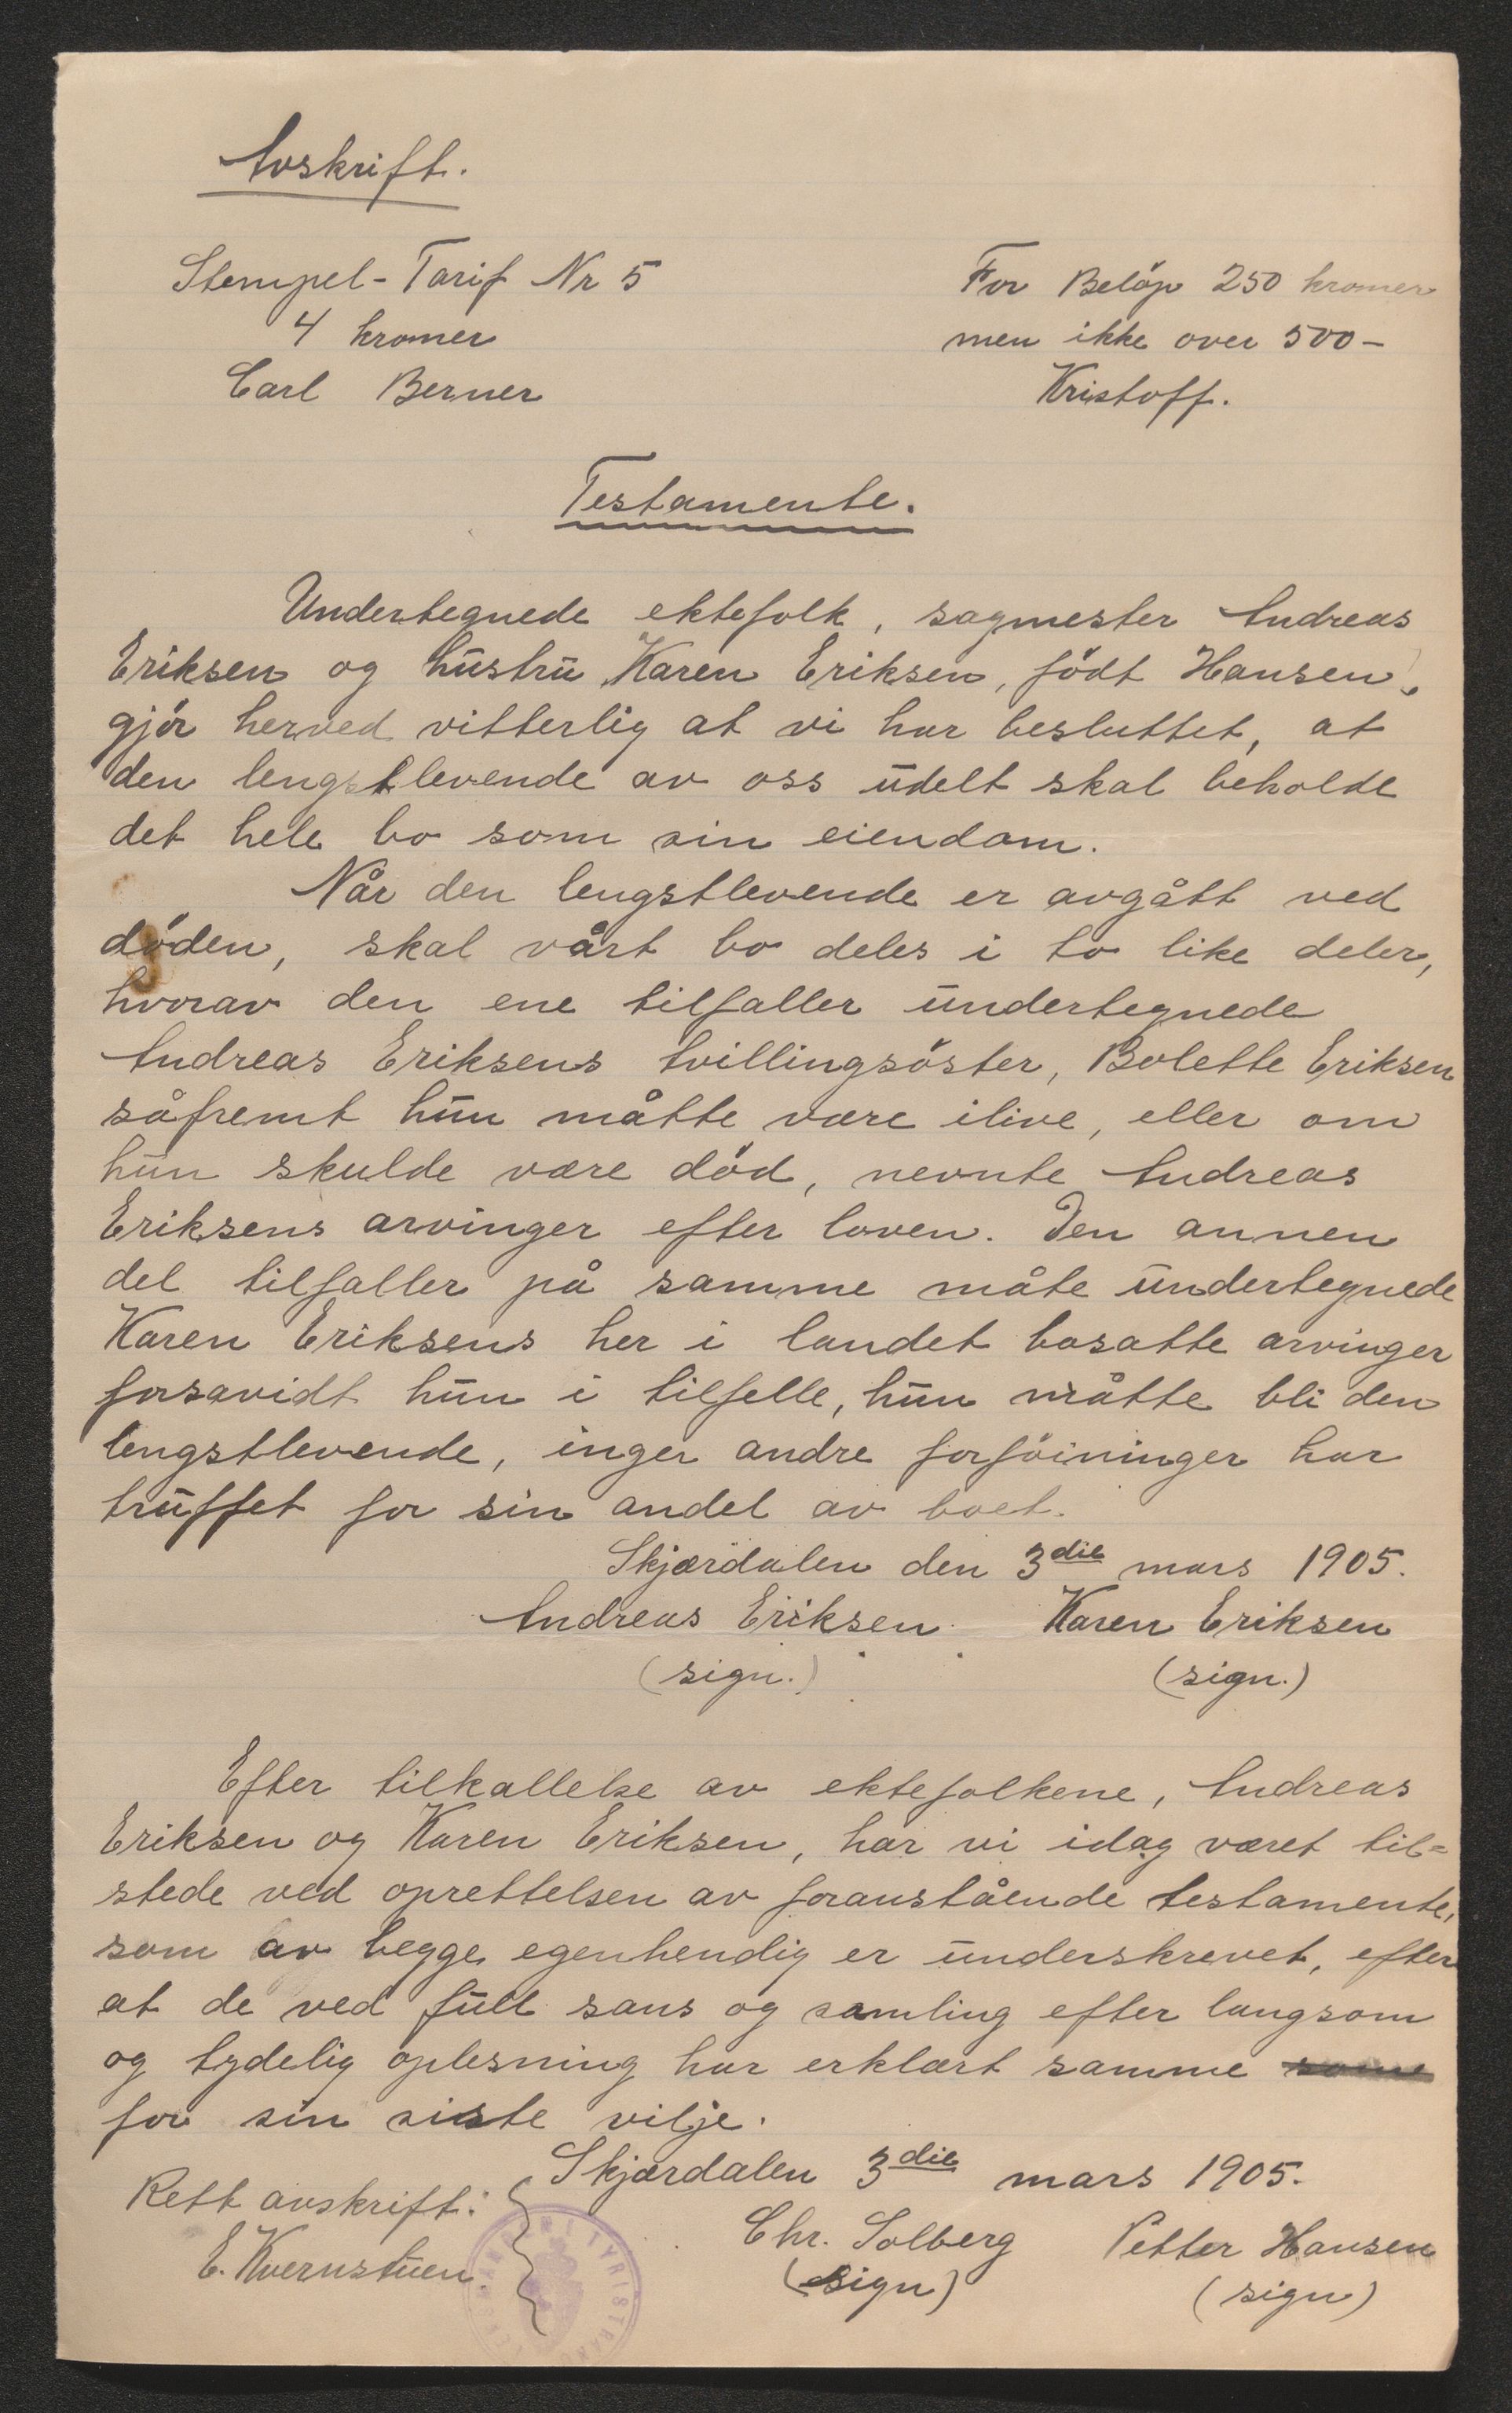 Avskrift.
Stempel-Tarif Nr 5
4 kroner
Carl Berner
For Beløp 250 kroner
men ikke over 500 -
Kristoff.
Testamente.
Undertegnede ektefolk, sagmester Andreas
Eriksen og hustru Karen Eriksen, født Hansen,
gjør herved vitterlig at vi har besluttet, at
den lengstlevende av oss udelt skal beholde
det hele bo som sin eiendom.
Når den lengstlevende er avgått ved
døden, skal vårt bo deles i to like deler,
hvorav den ene tilfaller undertegnede
Andreas Eriksens tvillingsøster, Bolette Eriksen
såfremt hun måtte være ilive, eller om
hun skulde være død, nevnte Andreas
Eriksens arvinger efter loven. Den annen
del tilfaller på samme måte undertegnede
Karen Eriksens her i landet bosatte arvinger
forsavidt hun i tilfelle, hun måtte bli den
lengstlevende, inger andre forføininger har
truffet for sin andel av boet.
Skjærdalen den 3die mars 1905.
Andreas Eriksen Karen Eriksen
(sign.) (sign.)
Efter tilkallelse av ektefolkene, Andreas
Eriksen og Karen Eriksen, har vi idag været til=
stede ved oprettelsen av foranstående testamente,
som av begge egenhendig er underskrevet, efter
at de ved full sans og samling efter langsom
og tydelig oplesning har erklært samme some
for sin siste vilje.
Skjærdalen 3die mars 1905.
Rett avskrift:
E. Kvernstuen.
Chr. Solberg Petter Hansen
(sign) (sign)
TYRISTRAND